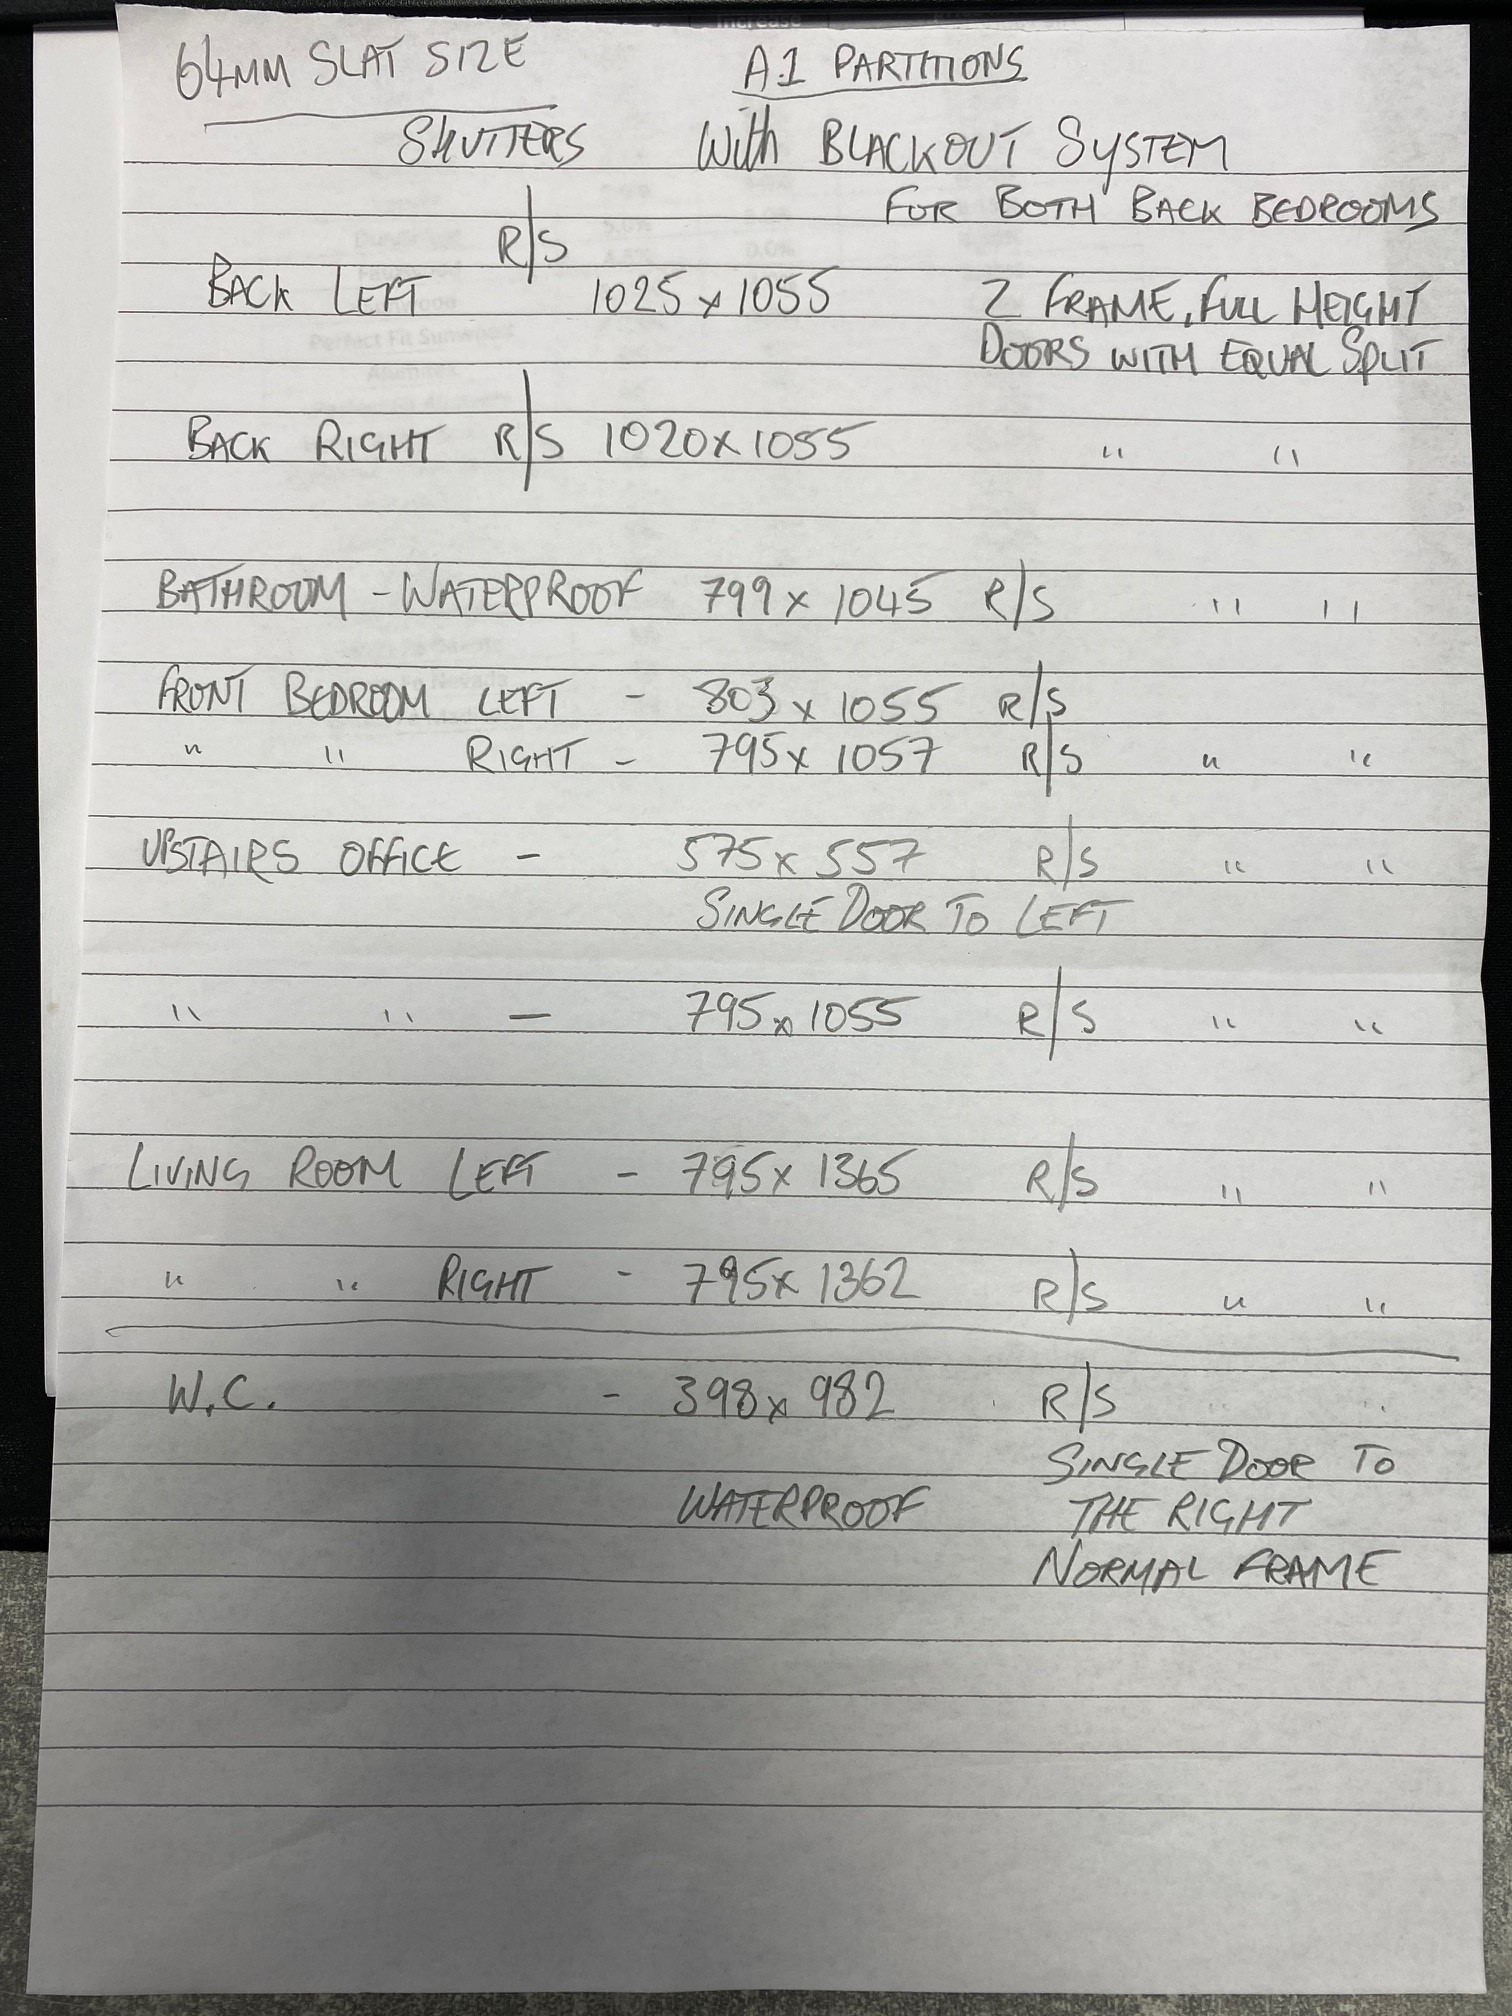 Increase
64MM SLAT SIZE A1 PARTITIONS
SHUTTERS With BLACKOUT SYSTEM
FOR BOTH BACK BEDROOMS
R/S
BACK LEFT 1025 x 1055 Z FRAME, FULL HEIGHT
DOORS WITH EQUAL SPLIT
Perfect Fit
BACK RIGHT R/S 1020 x 1055 " "
BATHROOM - WATERPROOF 799 x 1045 R/S " "
FRONT BEDROOM LEFT - 803 x 1055 R/S
" " RIGHT - 795 x 1057 R/S " "
UPSTAIRS OFFICE - 575 x 557 R/S " "
SINGLE DOOR TO LEFT
" " - 795 x 1055 R/S " "
LIVING ROOM LEFT - 795 x 1365 R/S " "
" " RIGHT - 795 x 1362 R/S " "
W.C. - 398 x 982 R/S " "
SINGLE DOOR TO
WATERPROOF THE RIGHT
NORMAL FRAME